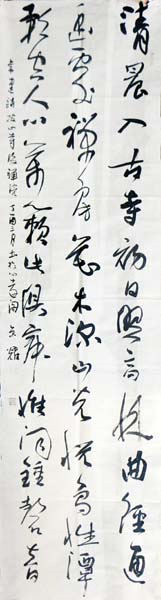 清晨入古寺初日照高林曲徑通
幽處禪房花木深山光悅鳥性潭
影空人心萬籟此俱寂惟聞鐘磬音
常建詩破山寺後禪院丁酉三月